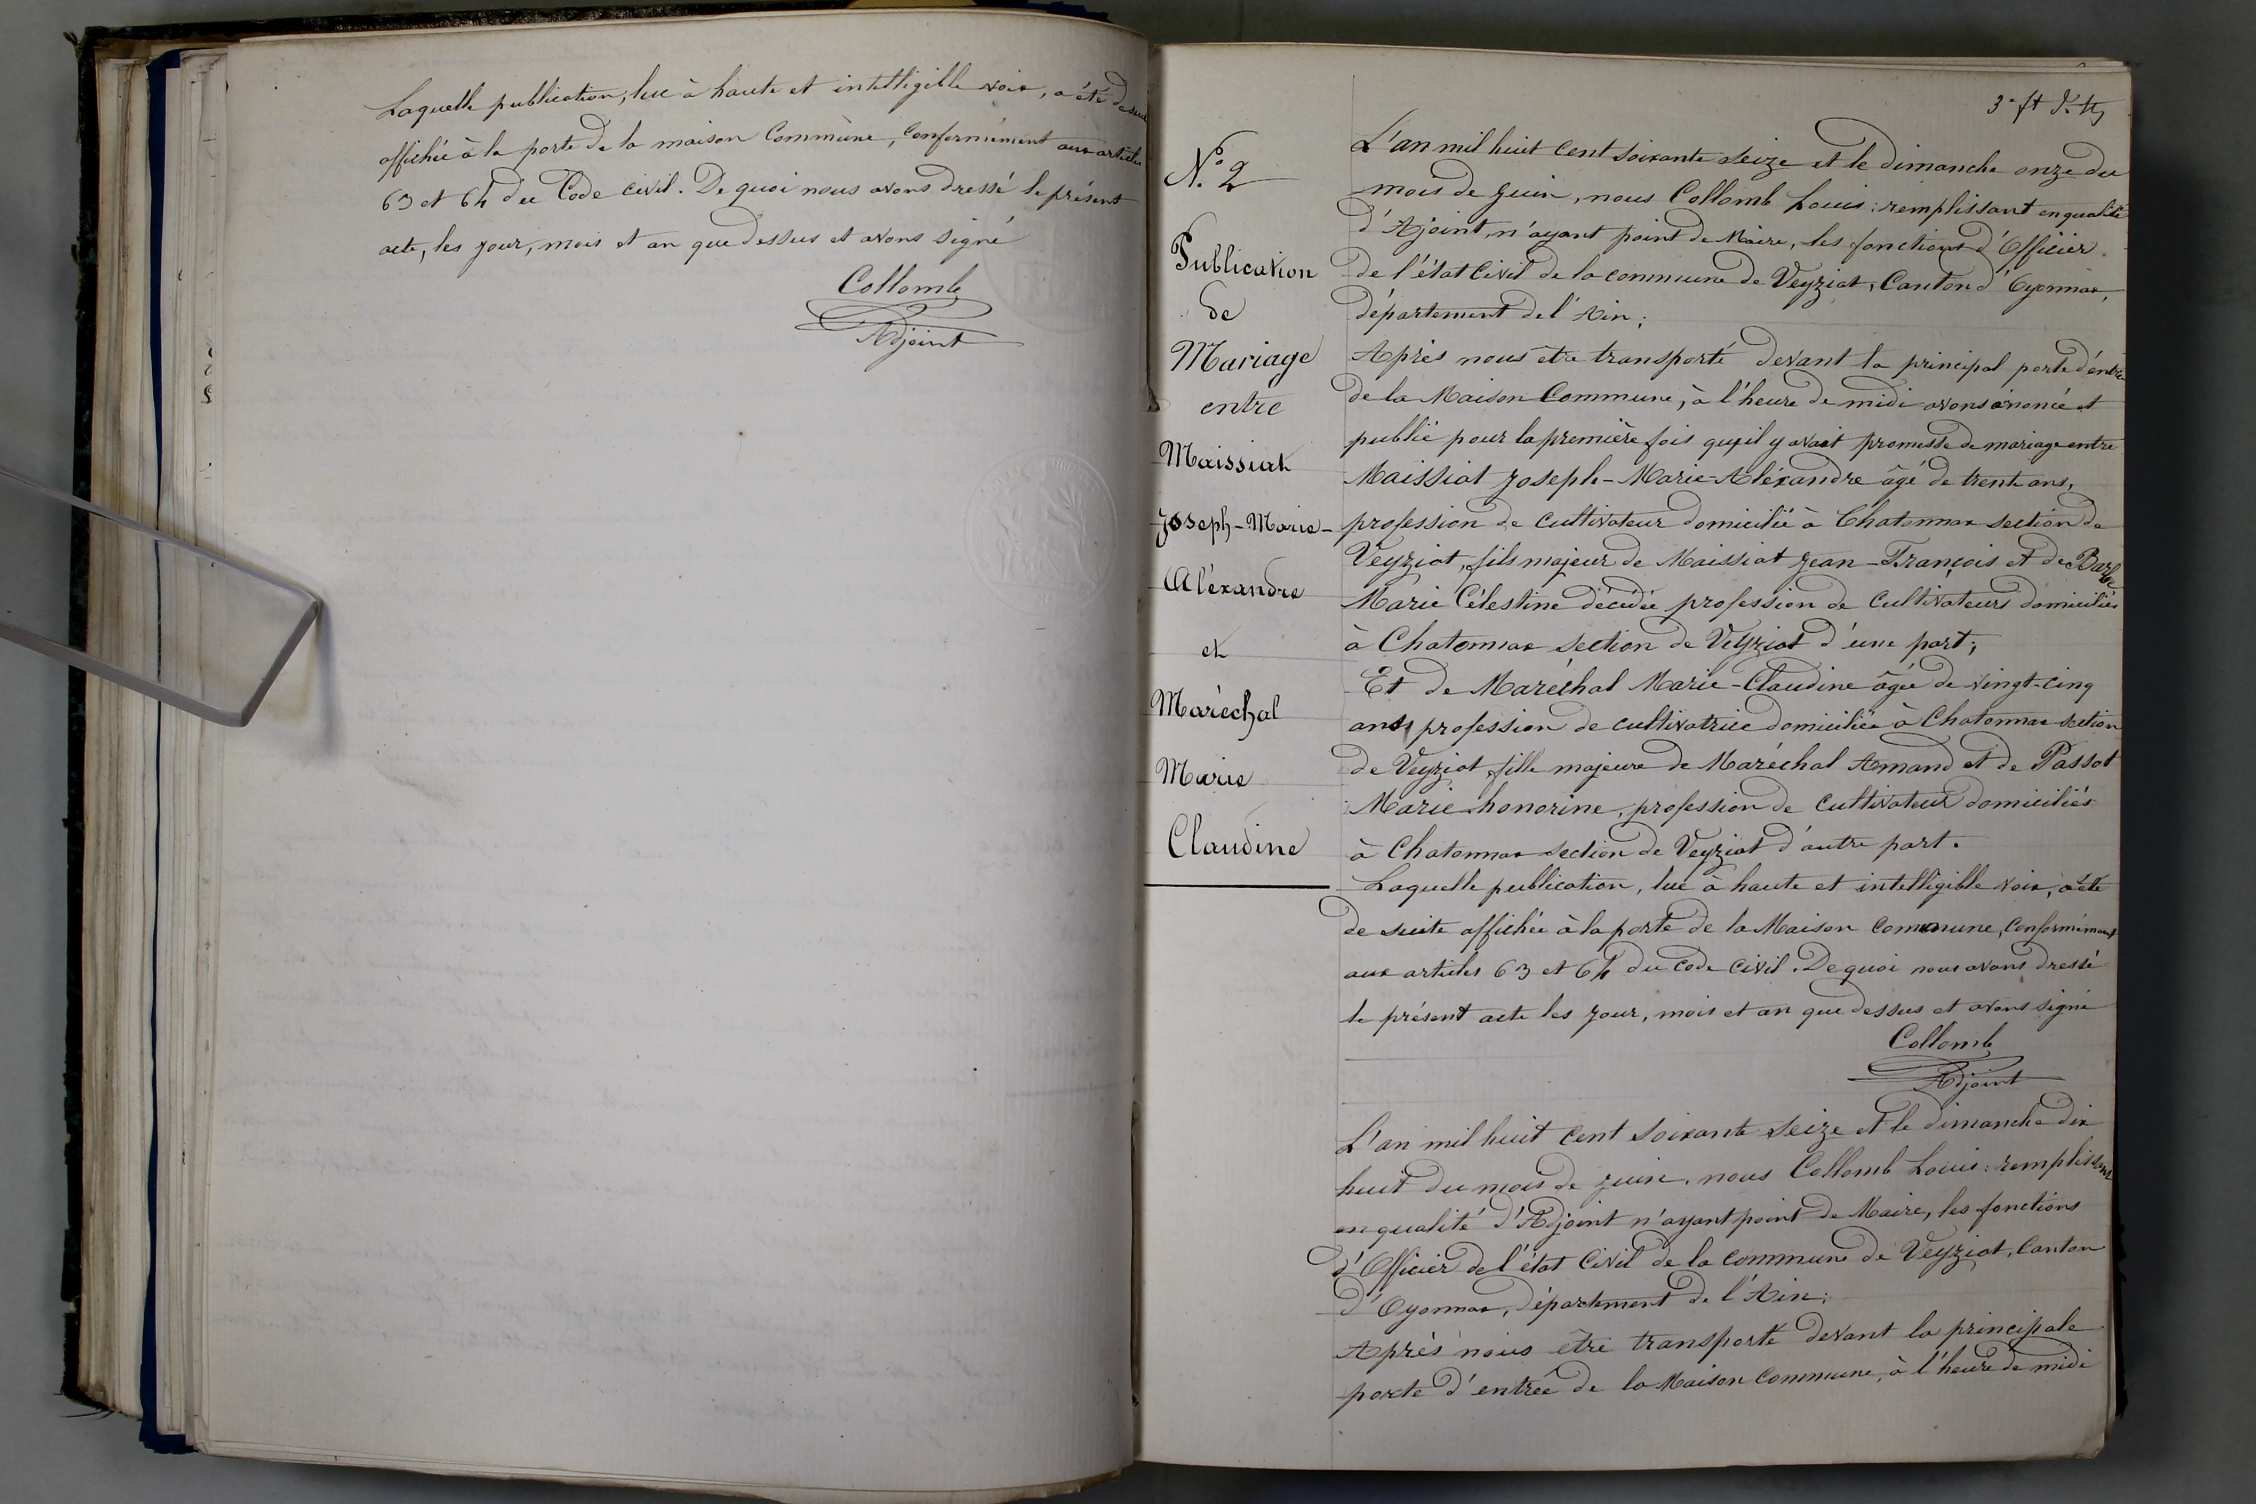 Laquelle publication, lue à haute et intelligible voix, a été de suite
affichée à la porte de la maison Commune, Conformément aux articles
63 et 64 du Code civil. De quoi nous avons dressé le présent
acte, les jour, mois et an que dessus et avons signé
Collomb
Adjoint
3e ft
N.o 2
Publication
de
Mariage
entre
Maissiat
Joseph-Marie-
Aléxandre
et
Maréchal
Marie
Claudine
L'an mil huit cent soixante seize et le dimanche onze du
mois de juin, nous Collomb Louis: remplissant en qualité
d'Ajoint, n'ayant point de Maire, les fonctions d'Officier
de l'état Civil de la commune de Veyziat, Canton d'Oyonnax,
département de l'Ain;
Après nous être transporté devant la principal porte d'entrée
de la Maison Commune, à l'heure de midi avons anoncé et
publié pour la première fois qu'il y avait promesse de mariage entre
Maissiat Joseph-Marie-Aléxandre âgé de trente ans,
profession de cultivateur domicilié à Chatonnax section de
Veyziat, fils majeur de Maissiat Jean-François et de Barbe
Marie Célestine décédée profession de Cultivateurs domiciliés
à Chatonnax section de Veyziat d'une part;
Et de Maréchal Marie-Claudine âgée de vingt-cinq
ans, profession de cultivatrice domiciliée à Chatonnax section
de Veyziat, fille majeure de Maréchal Amand et de Passot
Marie honorine, profession de cultivateur domiciliés
à Chatonnax section de Veyziat d'autre part.
Laquelle publication, lue à haute et intelligible voix, a été
de suite affichée à la porte de la Maison commune, Conformément
aux articles 63 et 64 du code civil. De quoi nous avons dressé
le présent acte les jour, mois et an que dessus et avons signé
Collomb
Adjoint
L'an mil huit cent soixante seize et le dimanche dix
huit du mois de juin, nous Collomb Louis: remplissant
en qualité d'Adjoint n'ayant point de Maire, les fonctions
d'Officier de l'état Civil de la commune de Veyziat, Canton
d'Oyonnax, département de l'Ain;
Après nous être transporté devant la principale
porte d'entrée de la Maison Commune, à l'heure de midi